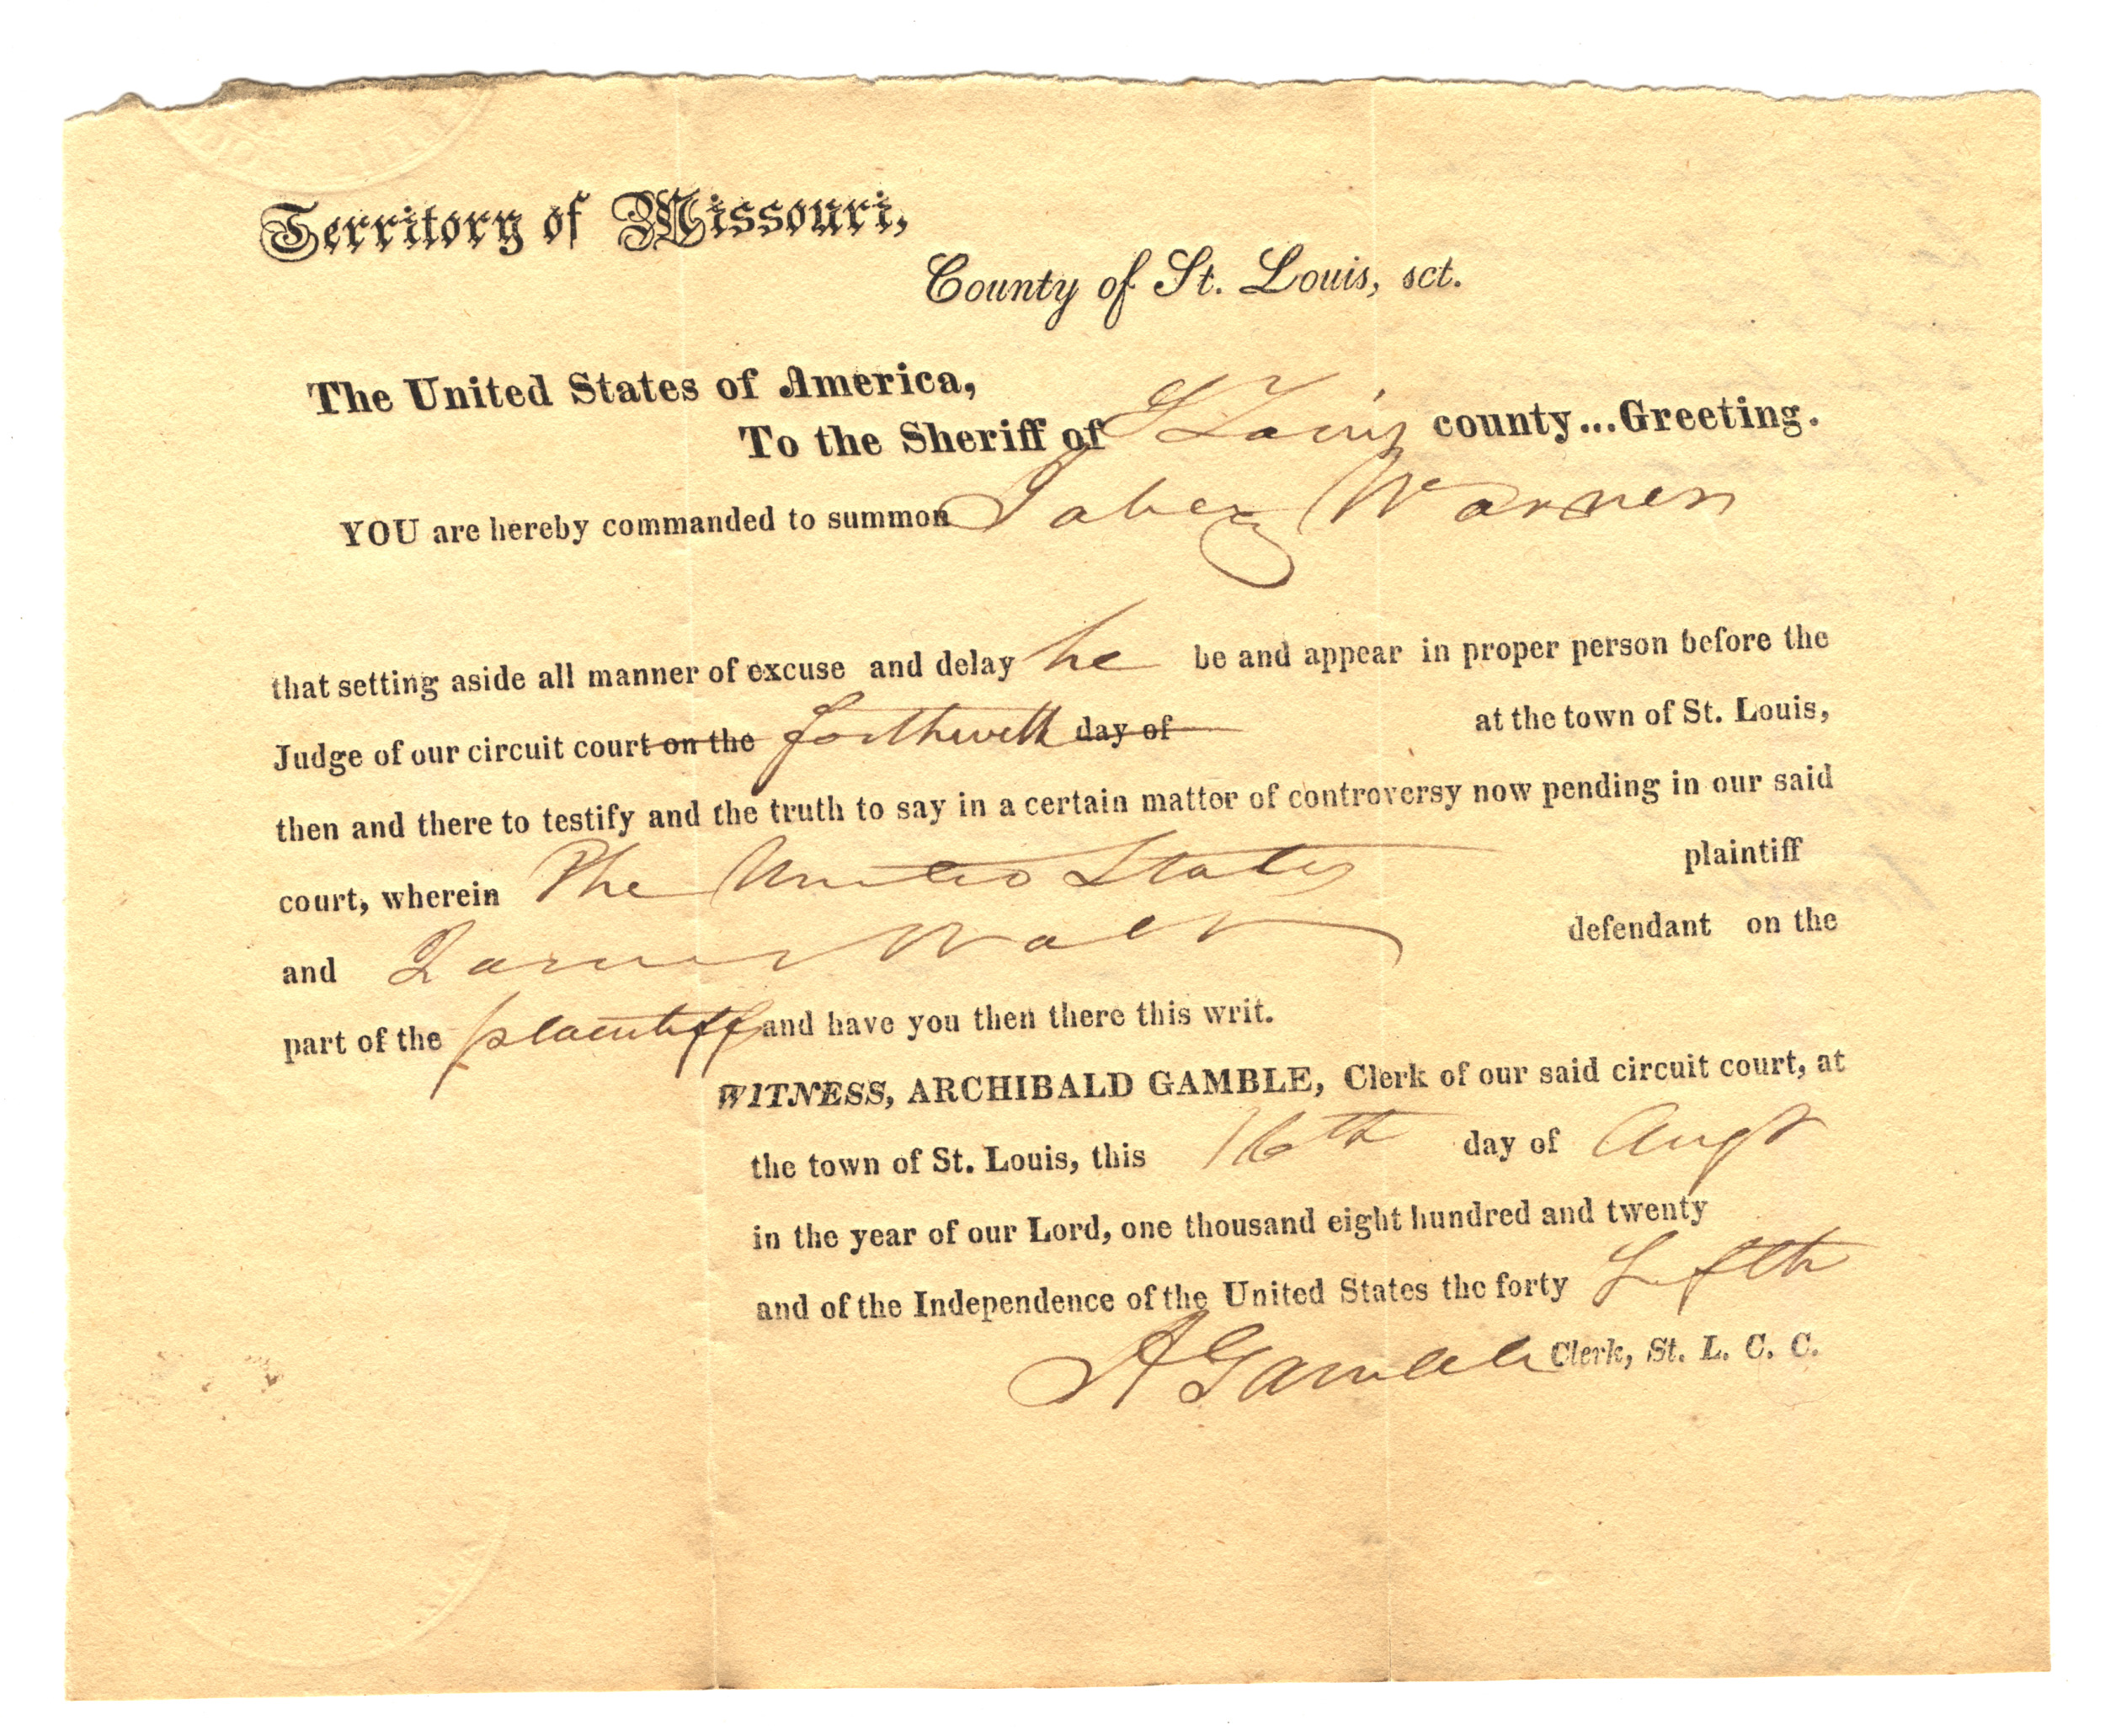 Territory of Missouri,
County of St. Louis, sct.
The United States of America,
To the Sheriff of St Louis county...Greeting.
YOU are hereby commanded to summon Jabez Warner
that setting aside all manner of excuse and delay he be and appear in proper person before the
Judge of our circuit court on the forthwith day of at the town of St. Louis,
then and there to testify and the truth to say in a certain matter of controversy now pending in our said
court, wherein The United States plaintiff
and defendant on the
part of the plaintiff and have you then there this writ.
WITNESS, ARCHIBALD GAMBLE, Clerk of our said circuit court, at
the town of St. Louis, this 16th day of Augt
in the year of our Lord, one thousand eight hundred and twenty
and of the Independence of the United States the forty fifth
A Gamble Clerk, St. L. C. C.